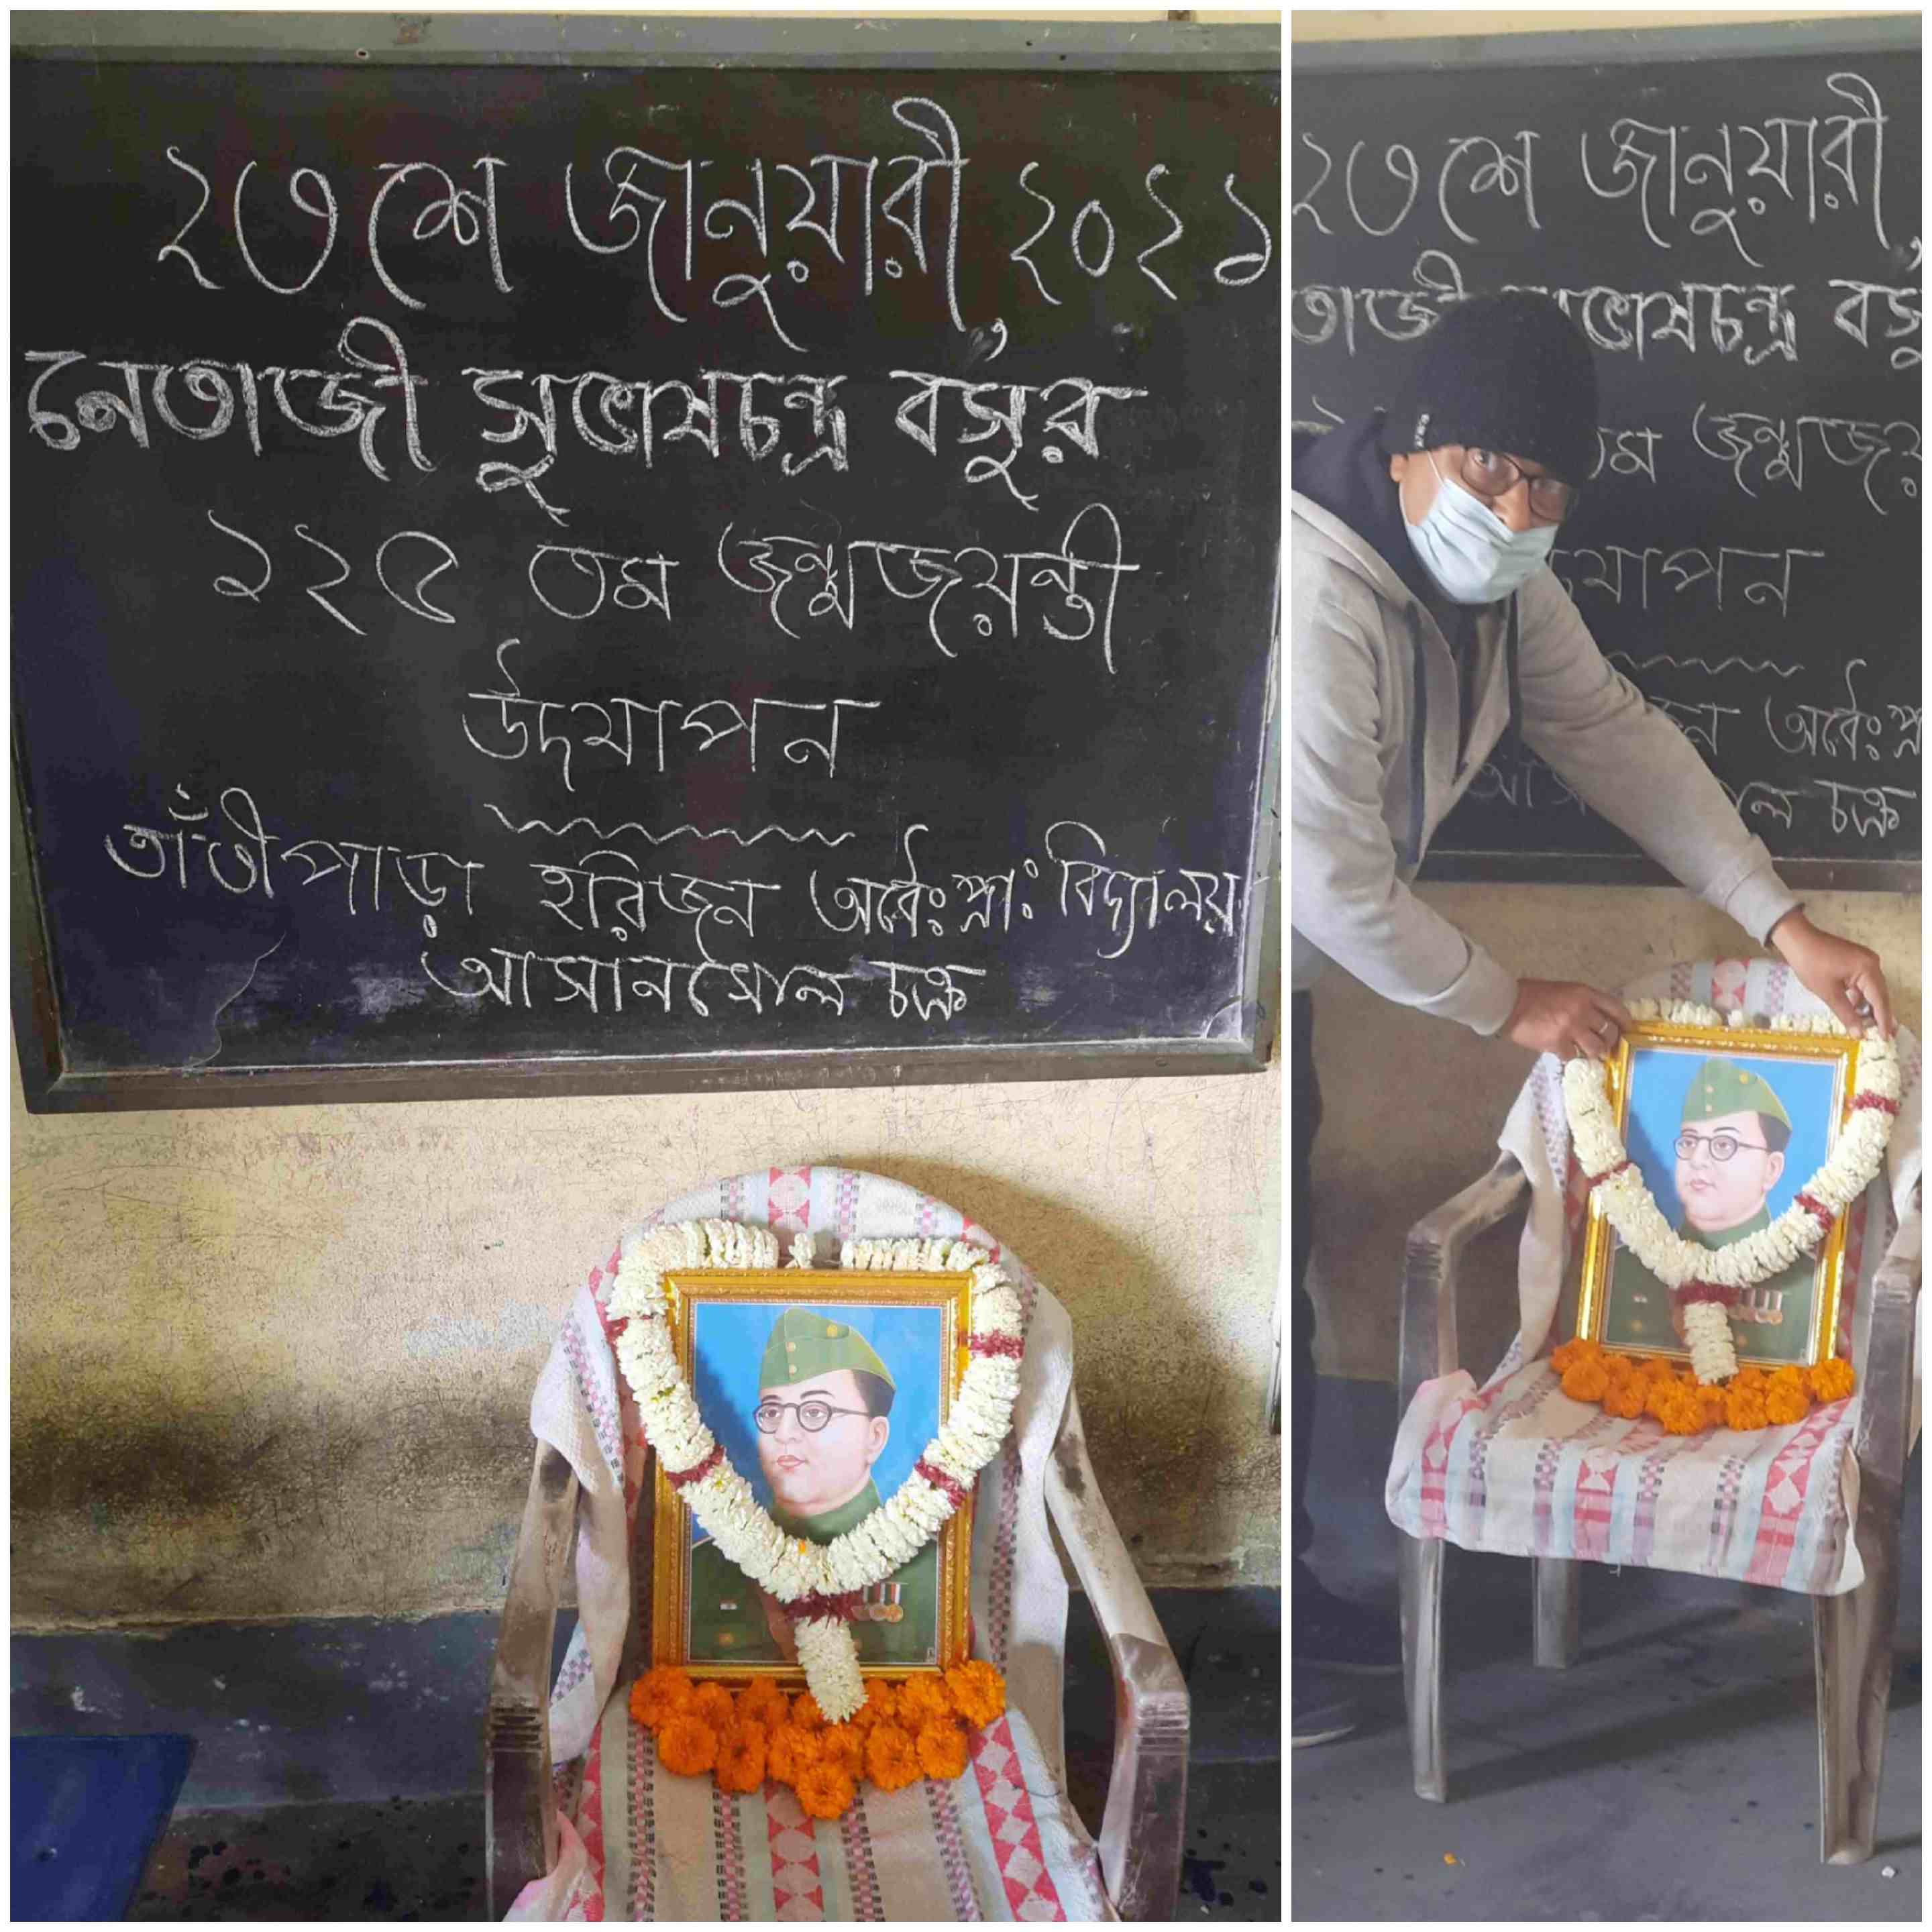 ২৩শে জানুয়ারী, ২০২১
নেতাজী সুভাষচন্দ্র বসুর
১২৫ তম জন্মজয়ন্তী
উদযাপন
তাঁতীপাড়া হরিজন অবৈঃ প্রাঃ বিদ্যালয়
আসানসোল চক্র
২৩শে জানুয়ারী,
তাজী ভাষচন্দ্র বসু
তম জন্মজয়
যাপন
ন অবৈঃ প্রা
ল চক্র